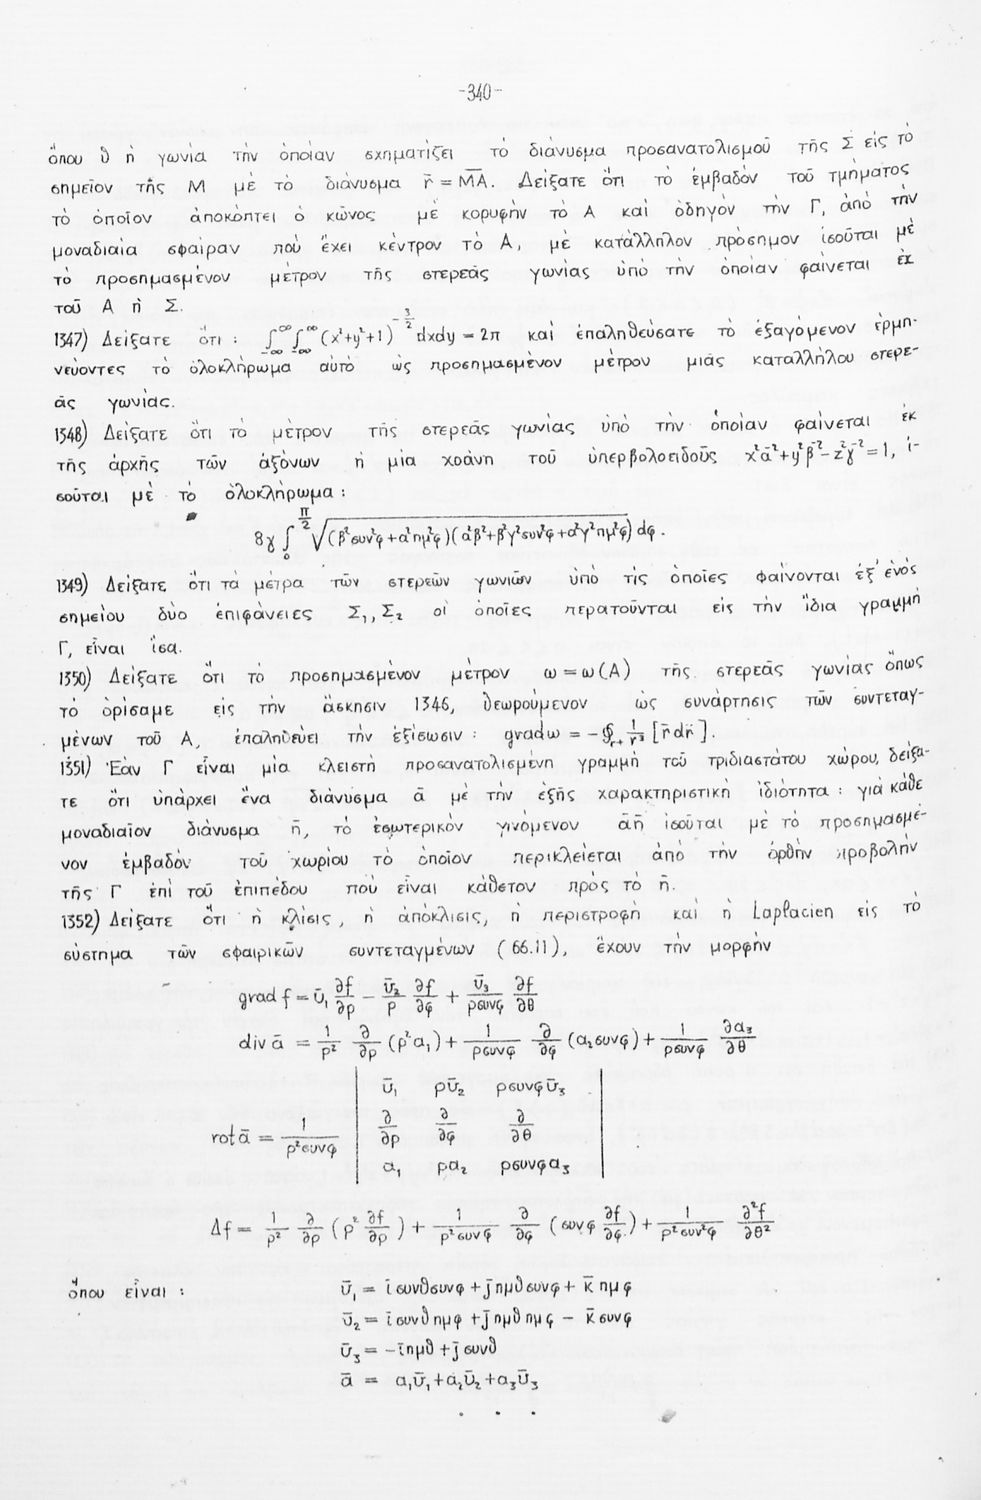 -340-
ὅπου θ ἡ γωνία τὴν ὁποίαν σχηματίζει τὸ διάνυσμα προσανατολισμοῦ τῆς Σ εἰς τὸ
σημεῖον τῆς Μ μὲ τὸ διάνυσμα r̄ = M̄Ā. Δείξατε ὅτι τὸ ἐμβαδόν τοῦ τμήματος
τὸ ὁποῖον ἀποκόπτει ὁ κῶνος μὲ κορυφὴν τὸ Α καὶ ὁδηγόν τὴν Γ, ἀπό τὴν
μοναδιαία σφαῖραν ποὺ ἔχει κέντρον τὸ Α, μὲ κατάλληλον πρόσημον ἰσοῦται μὲ
τὸ προσημασμένον μέτρον τῆς στερεᾶς γωνίας ὑπὸ τὴν ὁποίαν φαίνεται ἐκ
τοῦ Α ἡ Σ.
1347) Δείξατε ὅτι : ∫_{-∞}^{∞}∫_{-∞}^{∞} (x²+y²+1)^{-3/2} dxdy = 2π καὶ ἐπαληθεύσατε τὸ ἐξαγόμενον ἑρμη-
νεύοντες τὸ ὁλοκλήρωμα αὐτὸ ὡς προσημασμένον μέτρον μιᾶς καταλλήλου στερε-
ᾶς γωνίας.
1348) Δείξατε ὅτι τὸ μέτρον τῆς στερεᾶς γωνίας ὑπὸ τὴν ὁποίαν φαίνεται ἐκ
τῆς ἀρχῆς τῶν ἀξόνων ἡ μία χοάνη τοῦ ὑπερβολοειδοῦς x²α⁻²+y²β⁻²-z²γ⁻²=1, ἰ-
σοῦται μὲ τὸ ὁλοκλήρωμα :
8γ ∫_0^{π/2} √((β²συν²φ+α²ημ²φ)(α²β²+β²γ²συν²φ+α²γ²ημ²φ)) dφ.
1349) Δείξατε ὅτι τὰ μέτρα τῶν στερεῶν γωνιῶν ὑπὸ τὶς ὁποῖες φαίνονται ἐξ ἑνὸς
σημείου δύο ἐπιφάνειες Σ₁, Σ₂ οἱ ὁποῖες περατοῦνται εἰς τὴν ἴδια γραμμή
Γ, εἶναι ἴσα.
1350) Δείξατε ὅτι τὸ προσημασμένον μέτρον ω = ω(Α) τῆς στερεᾶς γωνίας ὅπως
τὸ ὁρίσαμε εἰς τὴν ἄσκησιν 1346, θεωρούμενον ὡς συνάρτησις τῶν συντεταγ-
μένων τοῦ Α, ἐπαληθεύει τὴν ἐξίσωσιν : gradω = -∮_{Γ+} 1/r³ [r̄ dr̄].
1351) Ἐὰν Γ εἶναι μία κλειστὴ προσανατολισμένη γραμμὴ τοῦ τριδιαστάτου χώρου, δείξα-
τε ὅτι ὑπάρχει ἕνα διάνυσμα ᾱ μὲ τὴν ἑξῆς χαρακτηριστικὴ ἰδιότητα : γιὰ κάθε
μοναδιαῖον διάνυσμα η̄, τὸ ἐσωτερικόν γινόμενον ᾱη̄ ἰσοῦται μὲ τὸ προσημασμέ-
νον ἐμβαδόν τοῦ χωρίου τὸ ὁποῖον περικλείεται ἀπὸ τὴν ὀρθὴν προβολὴν
τῆς Γ ἐπὶ τοῦ ἐπιπέδου ποὺ εἶναι κάθετον πρὸς τὸ η̄.
1352) Δείξατε ὅτι ἡ κλίσις, ἡ ἀπόκλισις, ἡ περιστροφὴ καὶ ἡ Laplacien εἰς τὸ
σύστημα τῶν σφαιρικῶν συντεταγμένων (66.11), ἔχουν τὴν μορφὴν
grad f = ῡ₁ ∂f/∂ρ - ῡ₂/ρ ∂f/∂φ + ῡ₃/ρσυνφ ∂f/∂θ
div ᾱ = 1/ρ² ∂/∂ρ (ρ²α₁) + 1/ρσυνφ ∂/∂φ (α₂συνφ) + 1/ρσυνφ ∂α₃/∂θ
ῡ₁ ρῡ₂ ρσυνφῡ₃
rot ᾱ = 1/ρ²συνφ | ∂/∂ρ ∂/∂φ ∂/∂θ |
α₁ ρα₂ ρσυνφα₃
Δf = 1/ρ² ∂/∂ρ (ρ² ∂f/∂ρ) + 1/ρ²συνφ ∂/∂φ (συνφ ∂f/∂φ) + 1/ρ²συν²φ ∂²f/∂θ²
ὅπου εἶναι : ῡ₁ = ῑ συνθσυνφ + j̄ ημθσυνφ + k̄ ημφ
ῡ₂ = ῑ συνθημφ + j̄ ημθημφ - k̄ συνφ
ῡ₃ = -ῑημθ + j̄ συνθ
ᾱ = α₁ῡ₁+α₂ῡ₂+α₃ῡ₃
. . .